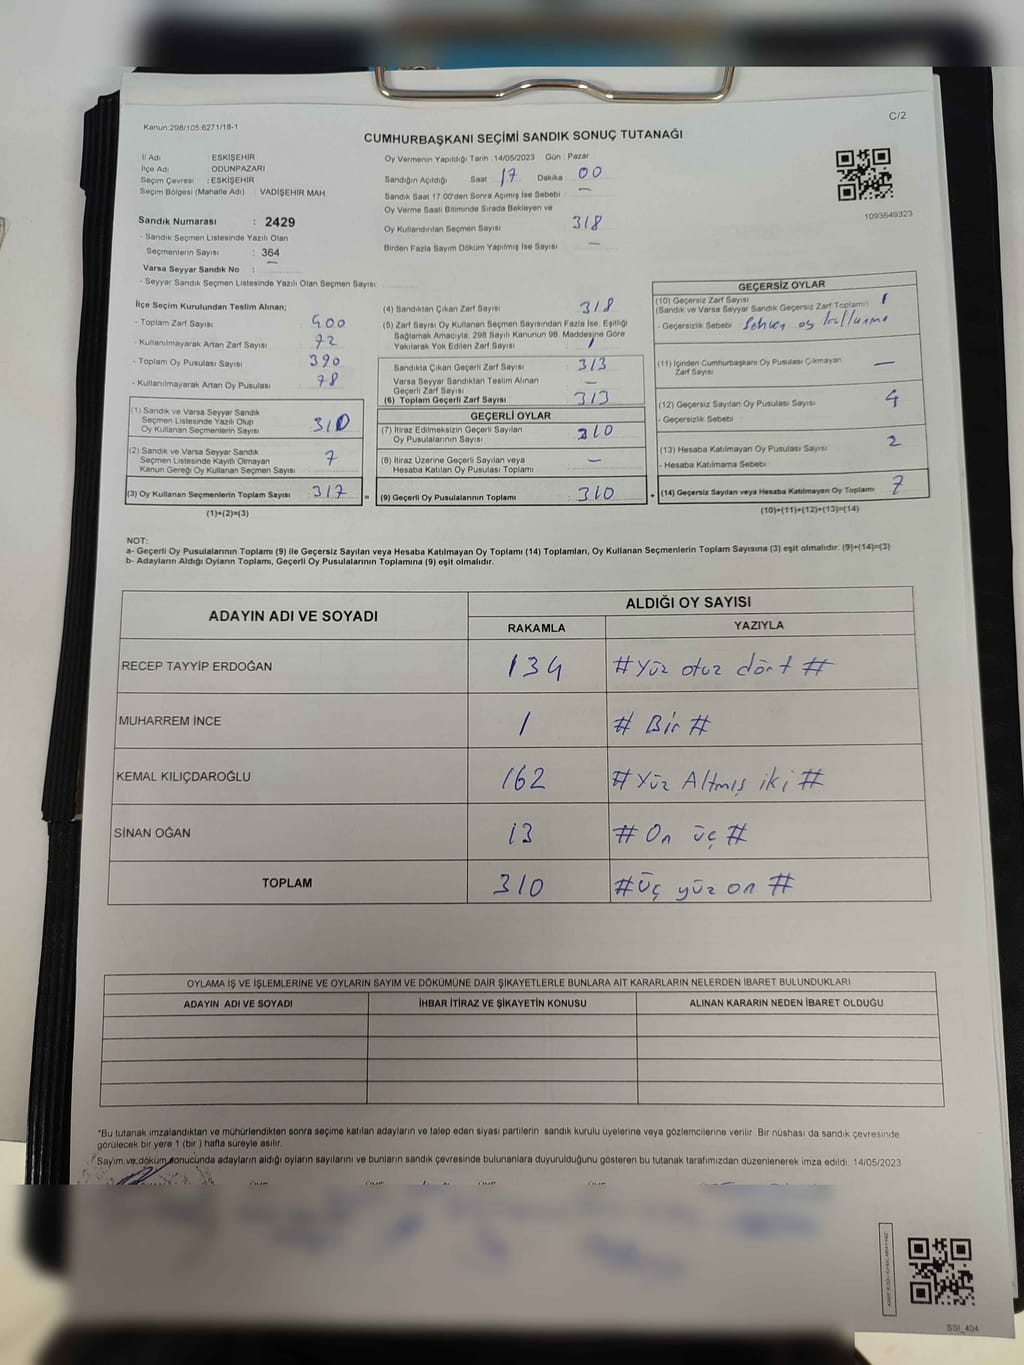 Kanun:298/105;6271/18-1
C/2
CUMHURBAŞKANI SEÇİMİ SANDIK SONUÇ TUTANAĞI
İl Adı : ESKİŞEHİR
İlçe Adı : ODUNPAZARI
Seçim Çevresi : ESKİŞEHİR
Seçim Bölgesi (Mahalle Adı) : VADİŞEHİR MAH.
Sandık Numarası : 2429
- Sandık Seçmen Listesinde Yazılı Olan
Seçmenlerin Sayısı : 364
Varsa Seyyar Sandık No :
- Seyyar Sandık Seçmen Listesinde Yazılı Olan Seçmen Sayısı:
Oy Vermenin Yapıldığı Tarih :14/05/2023 Gün : Pazar
Sandığın Açıldığı Saat : 17 Dakika : 00
Sandık Saat 17.00'den Sonra Açılmış İse Sebebi : —
Oy Verme Saati Bitiminde Sırada Bekleyen ve
Oy Kullandırılan Seçmen Sayısı : 318
Birden Fazla Sayım Döküm Yapılmış İse Sayısı : —
1093649323
İlçe Seçim Kurulundan Teslim Alınan;
- Toplam Zarf Sayısı : 400
- Kullanılmayarak Artan Zarf Sayısı : 72
- Toplam Oy Pusulası Sayısı : 390
- Kullanılmayarak Artan Oy Pusulası : 78
(1) Sandık ve Varsa Seyyar Sandık
Seçmen Listesinde Yazılı Olup
Oy Kullanan Seçmenlerin Sayısı : 310
(2) Sandık ve Varsa Seyyar Sandık
Seçmen Listesinde Kayıtlı Olmayan
Kanun Gereği Oy Kullanan Seçmen Sayısı : 7
(3) Oy Kullanan Seçmenlerin Toplam Sayısı : 317 =
(1)+(2)=(3)
(4) Sandıktan Çıkan Zarf Sayısı : 318
(5) Zarf Sayısı Oy Kullanan Seçmen Sayısından Fazla İse, Eşitliği
Sağlamak Amacıyla, 298 Sayılı Kanunun 98. Maddesine Göre
Yakılarak Yok Edilen Zarf Sayısı : 1
Sandıkta Çıkan Geçerli Zarf Sayısı : 313
Varsa Seyyar Sandıktan Teslim Alınan
Geçerli Zarf Sayısı : —
(6) Toplam Geçerli Zarf Sayısı : 313
GEÇERLİ OYLAR
(7) İtiraz Edilmeksizin Geçerli Sayılan
Oy Pusulalarının Sayısı : 310
(8) İtiraz Üzerine Geçerli Sayılan veya
Hesaba Katılan Oy Pusulası Toplamı : —
(9) Geçerli Oy Pusulalarının Toplamı : 310 +
GEÇERSİZ OYLAR
(10) Geçersiz Zarf Sayısı
(Sandık ve Varsa Seyyar Sandık Geçersiz Zarf Toplamı) : 1
- Geçersizlik Sebebi : Sehven oy kullanma
(11) İçinden Cumhurbaşkanı Oy Pusulası Çıkmayan
Zarf Sayısı : —
(12) Geçersiz Sayılan Oy Pusulası Sayısı : 4
- Geçersizlik Sebebi :
(13) Hesaba Katılmayan Oy Pusulası Sayısı : 2
- Hesaba Katılmama Sebebi :
(14) Geçersiz Sayılan veya Hesaba Katılmayan Oy Toplamı : 7
(10)+(11)+(12)+(13)=(14)
NOT:
a- Geçerli Oy Pusulalarının Toplamı (9) ile Geçersiz Sayılan veya Hesaba Katılmayan Oy Toplamı (14) Toplamları, Oy Kullanan Seçmenlerin Toplam Sayısına (3) eşit olmalıdır. (9)+(14)=(3)
b- Adayların Aldığı Oyların Toplamı, Geçerli Oy Pusulalarının Toplamına (9) eşit olmalıdır.
ADAYIN ADI VE SOYADI ALDIĞI OY SAYISI
RAKAMLA YAZIYLA
RECEP TAYYİP ERDOĞAN 134 #Yüz otuz dört #
MUHARREM İNCE 1 # Bir #
KEMAL KILIÇDAROĞLU 162 #Yüz Altmış iki #
SİNAN OĞAN 13 # On üç #
TOPLAM 310 #Üç yüz on #
OYLAMA İŞ VE İŞLEMLERİNE VE OYLARIN SAYIM VE DÖKÜMÜNE DAİR ŞİKAYETLERLE BUNLARA AİT KARARLARIN NELERDEN İBARET BULUNDUKLARI
ADAYIN ADI VE SOYADI İHBAR İTİRAZ VE ŞİKAYETİN KONUSU ALINAN KARARIN NEDEN İBARET OLDUĞU
*Bu tutanak imzalandıktan ve mühürlendikten sonra seçime katılan adayların ve talep eden siyasi partilerin sandık kurulu üyelerine veya gözlemcilerine verilir. Bir nüshası da sandık çevresinde
görülecek bir yere 1 (bir ) hafta süreyle asılır.
Sayım ve döküm sonucunda adayların aldığı oyların sayılarını ve bunların sandık çevresinde bulunanlara duyurulduğunu gösteren bu tutanak tarafımızdan düzenlenerek imza edildi. 14/05/2023
SSI_404